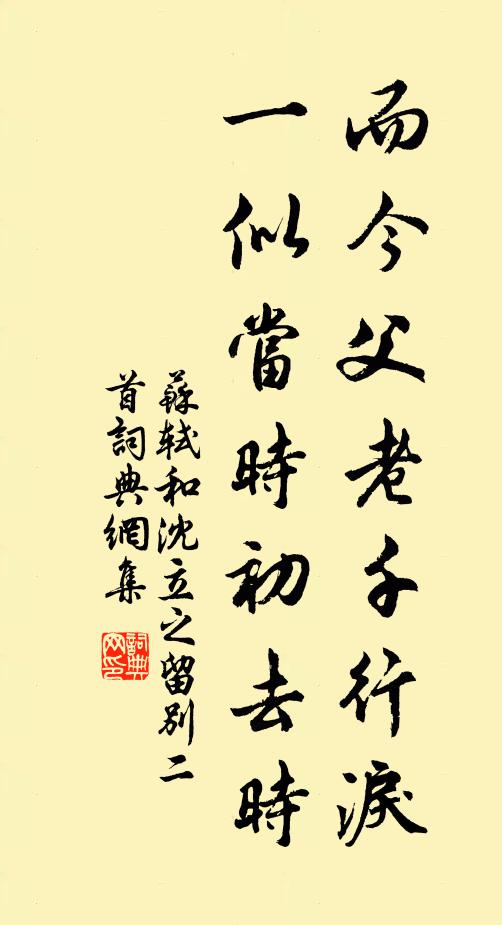 而今父老千行淚
一似當時初去時
蘇軾和沈立之留別二
首詞典網集